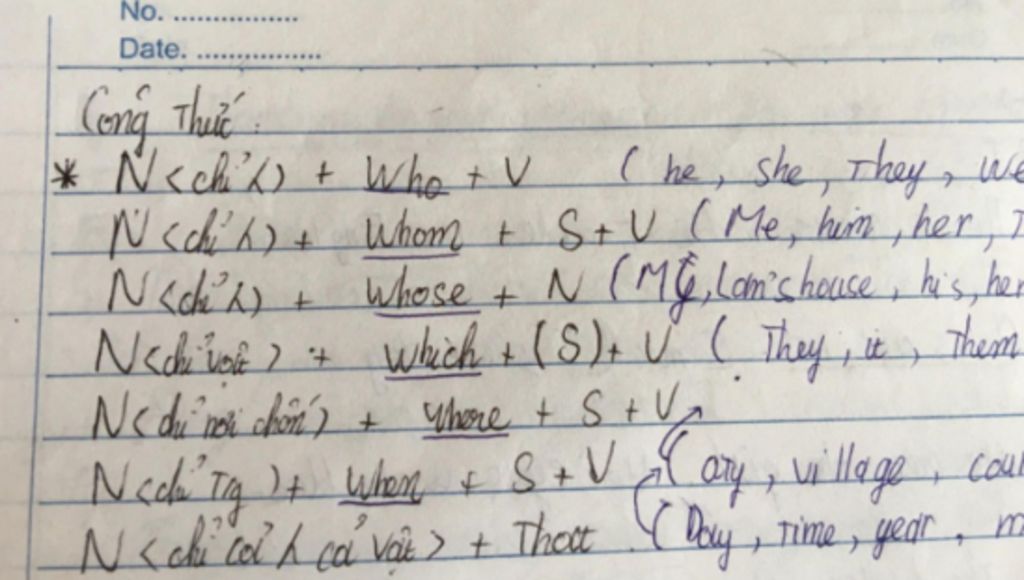 No. ................
Date. ................
Công Thức:
* N <chỉ λ> + Who + V ( he, she, They, we
N <chỉ λ> + Whom + S + V ( Me, him, her,
N <chỉ λ> + Whose + N ( Mỹ, Lam's house, his, her
N <chỉ vật> + which + (S) + V ( They, it, Them
N <chỉ nơi chốn> + where + S + V
N <chỉ Tg> + When + S + V ( city, village, coun
N <chỉ cả λ cả vật> + That ( Day, Time, year, m